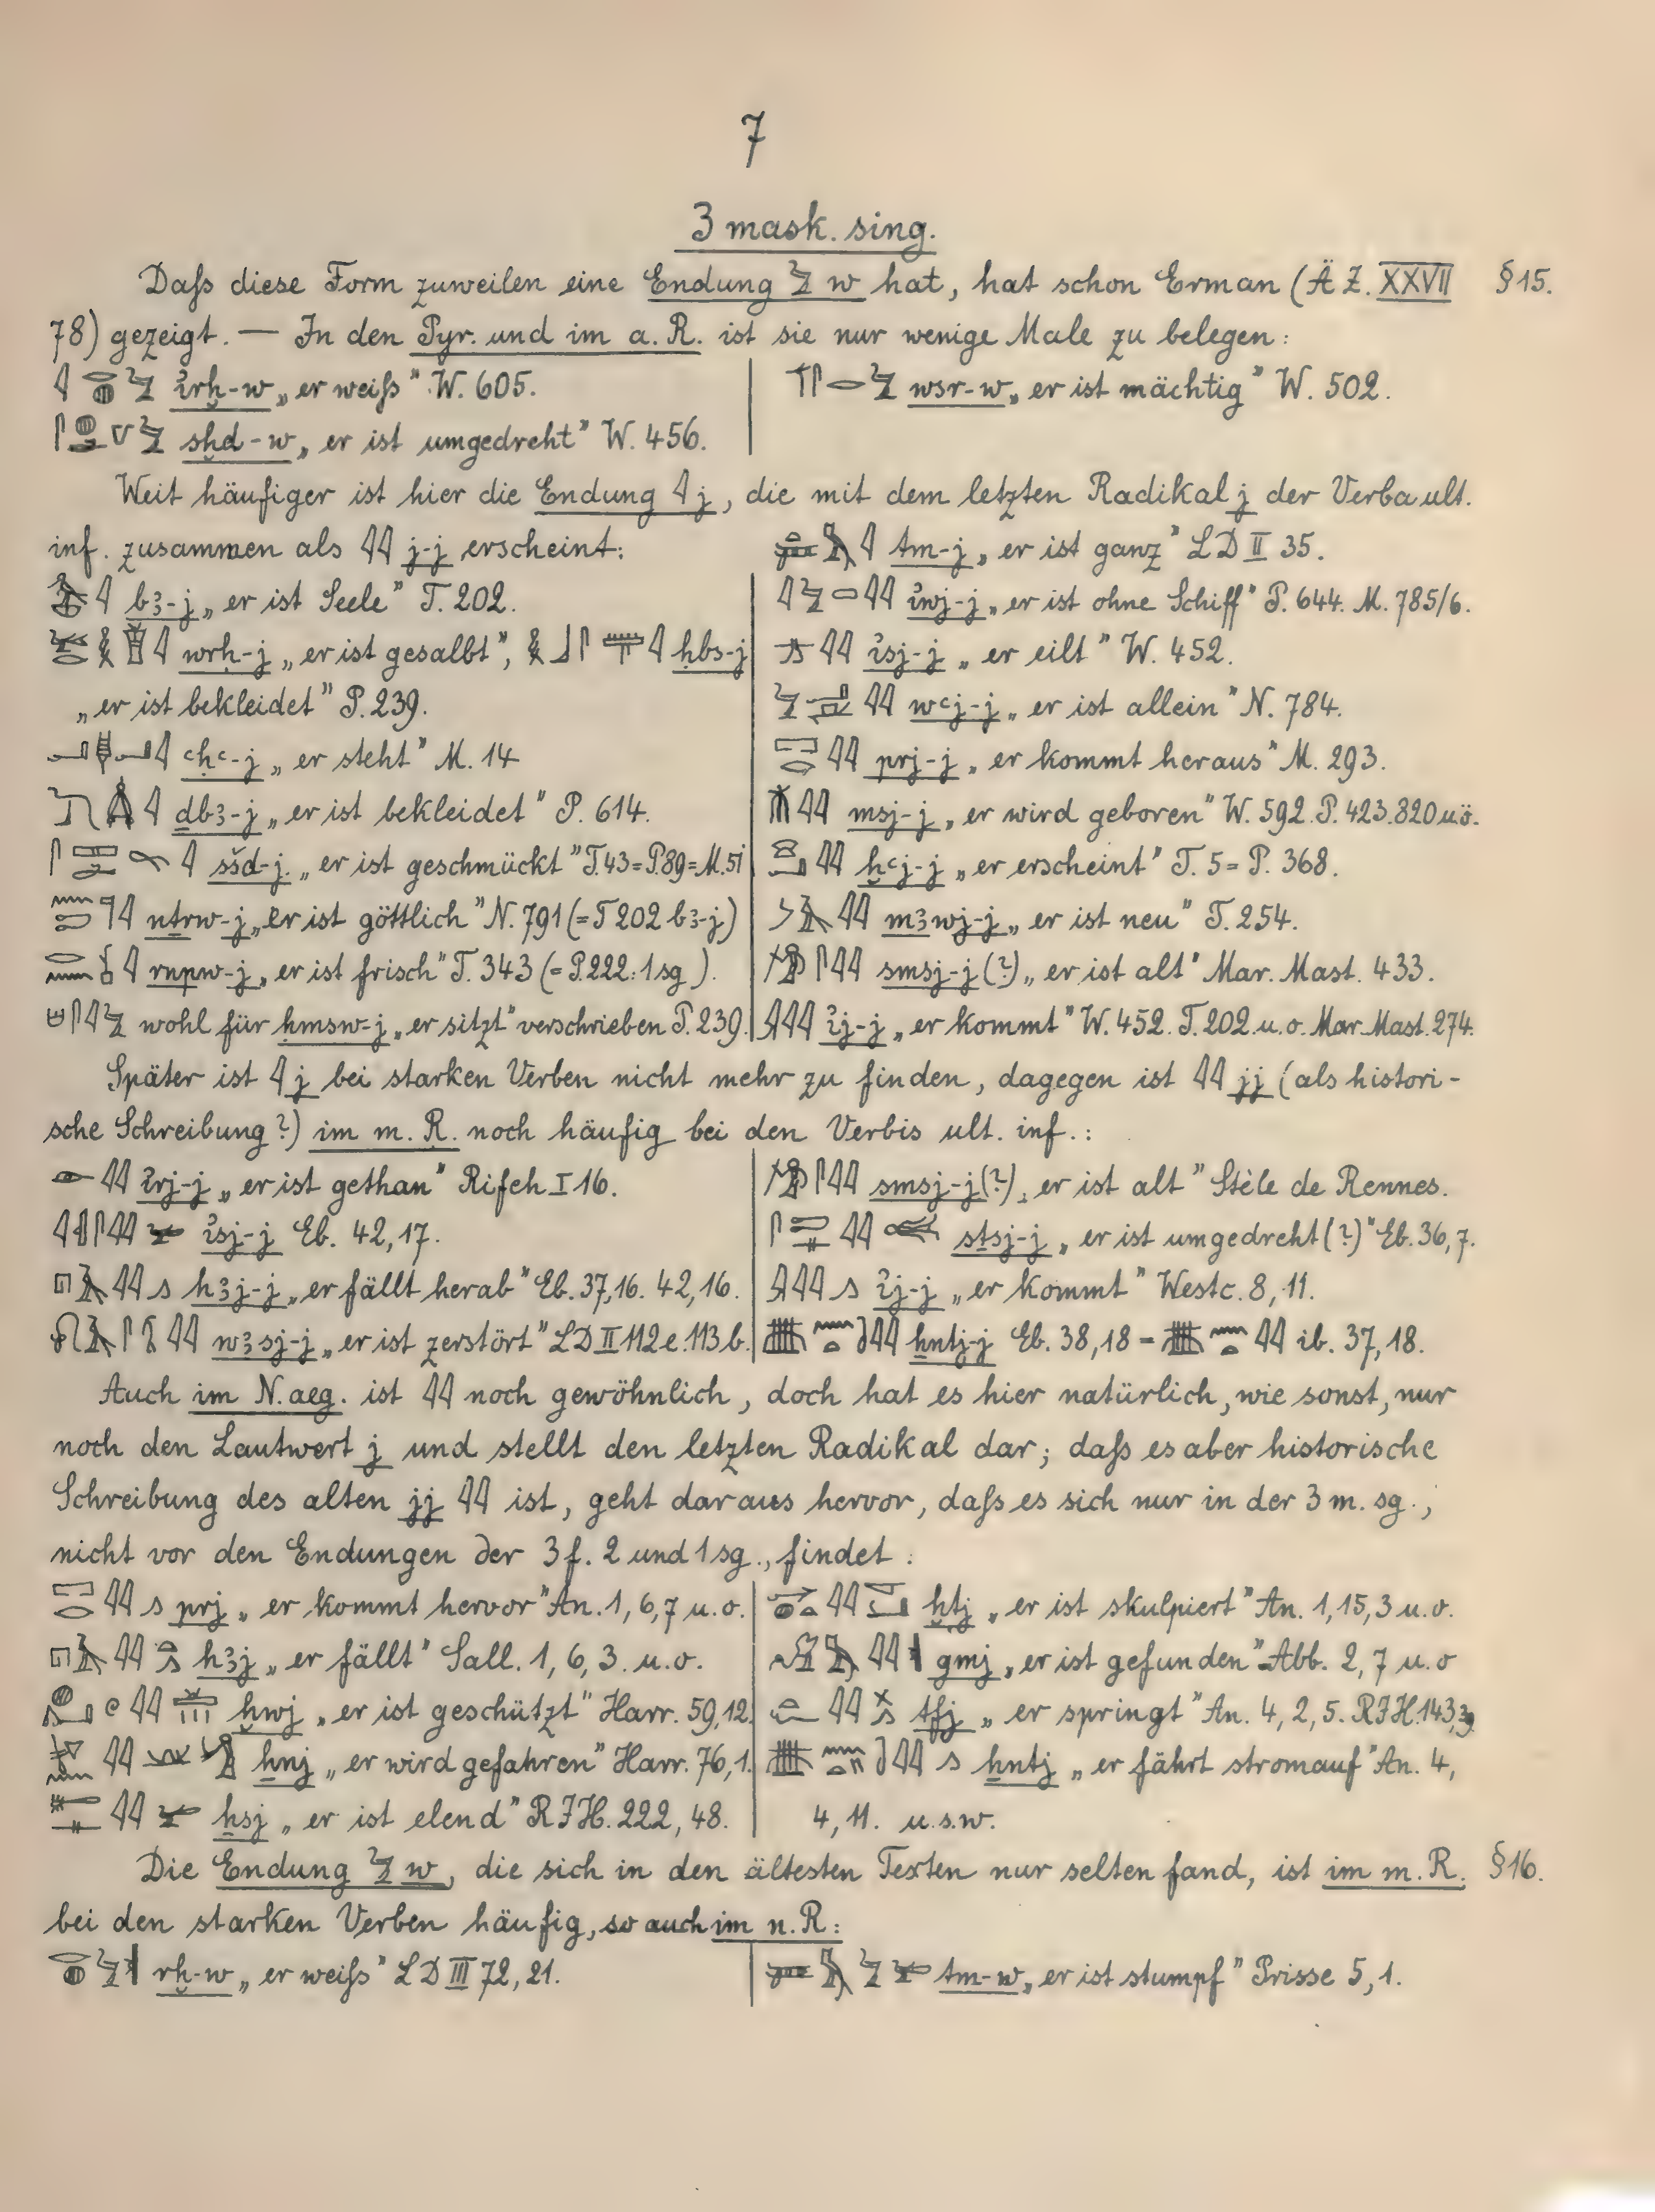 7
3 mask. sing.
Daſs diese Form zuweilen eine Endung 𓅱 w hat, hat schon Erman (ÄZ. XXVII §15.
78) gezeigt. — In den Pyr. und im a. R. ist sie nur wenige Male zu belegen:
ἰrḫ-w „er weiſs" W. 605.
wsr-w „er ist mächtig" W. 502.
sḫd-w „er ist umgedreht" W. 456.
Weit häufiger ist hier die Endung 𓇋 j, die mit dem letzten Radikal j der Verba ult.
inf. zusammen als 𓇋𓇋 j-j erscheint:
b3-j „er ist Seele" T. 202.
wrḥ-j „er ist gesalbt", ḥbs-j
„er ist bekleidet" P. 239.
ꜥḥꜥ-j „er steht" M. 14
ḏb3-j „er ist bekleidet" P. 614.
sšd-j. „er ist geschmückt" T. 43=P. 89=M. 51
nṯrw-j „er ist göttlich" N. 791 (=T 202 b3-j)
rnpw-j „er ist frisch" T. 343 (=P. 222: 1 sg).
wohl für ḥmsw-j „er sitzt" verschrieben P. 239.
tm-j „er ist ganz" LD II 35.
ἰwj-j „er ist ohne Schiff" P. 644. M. 785/6.
ἰsj-j „er eilt" W. 452.
wꜥj-j „er ist allein" N. 784.
prj-j „er kommt heraus" M. 293.
msj-j „er wird geboren" W. 592. P. 423. 820 u ö.
ḫꜥj-j „er erscheint" T. 5 = P. 368.
m3wj-j „er ist neu" T. 254.
smsj-j (?) „er ist alt" Mar. Mast. 433.
ἰj-j „er kommt" W. 452. T. 202. u. o. Mar. Mast. 274.
Später ist 𓇋 j bei starken Verben nicht mehr zu finden, dagegen ist 𓇋𓇋 jj (als histori-
sche Schreibung?) im m. R. noch häufig bei den Verbis ult. inf.:
ἰrj-j „er ist gethan" Rifeh I 16.
ἰsj-j Eb. 42, 17.
h3j-j „er fällt herab" Eb. 37, 16. 42, 16.
w3sj-j „er ist zerstört" LD II 112 e. 113 b.
smsj-j (?) „er ist alt" Stèle de Rennes.
sṯsj-j „er ist umgedreht (?)" Eb. 36, 7.
ἰj-j „er kommt" Westc. 8, 11.
ḫntj-j Eb. 38, 18 = 𓇋𓇋 ib. 37, 18.
Auch im N. aeg. ist 𓇋𓇋 noch gewöhnlich, doch hat es hier natürlich, wie sonst, nur
noch den Lautwert j und stellt den letzten Radikal dar; daſs es aber historische
Schreibung des alten jj 𓇋𓇋 ist, geht daraus hervor, daſs es sich nur in der 3 m. sg.,
nicht vor den Endungen der 3 f. 2 und 1 sg., findet:
prj „er kommt hervor" An. 1, 6, 7 u. o.
h3j „er fällt" Sall. 1, 6, 3. u. o.
ḫwj „er ist geschützt" Harr. 59, 12.
ẖnj „er wird gefahren" Harr. 76, 1.
ẖsj „er ist elend" RJH. 222, 48.
ḫtj „er ist skulpiert" An. 1, 15, 3 u. o.
gmj „er ist gefunden" Abb. 2, 7 u. o
tfj „er springt" An. 4, 2, 5. RJH. 143, 39
ḫntj „er fährt stromauf" An. 4,
4, 11. u. s. w.
Die Endung 𓅱 w, die sich in den ältesten Texten nur selten fand, ist im m. R. §16.
bei den starken Verben häufig, so auch im n. R:
rḫ-w „er weiſs" LD III 72, 21.
tm-w „er ist stumpf" Prisse 5, 1.